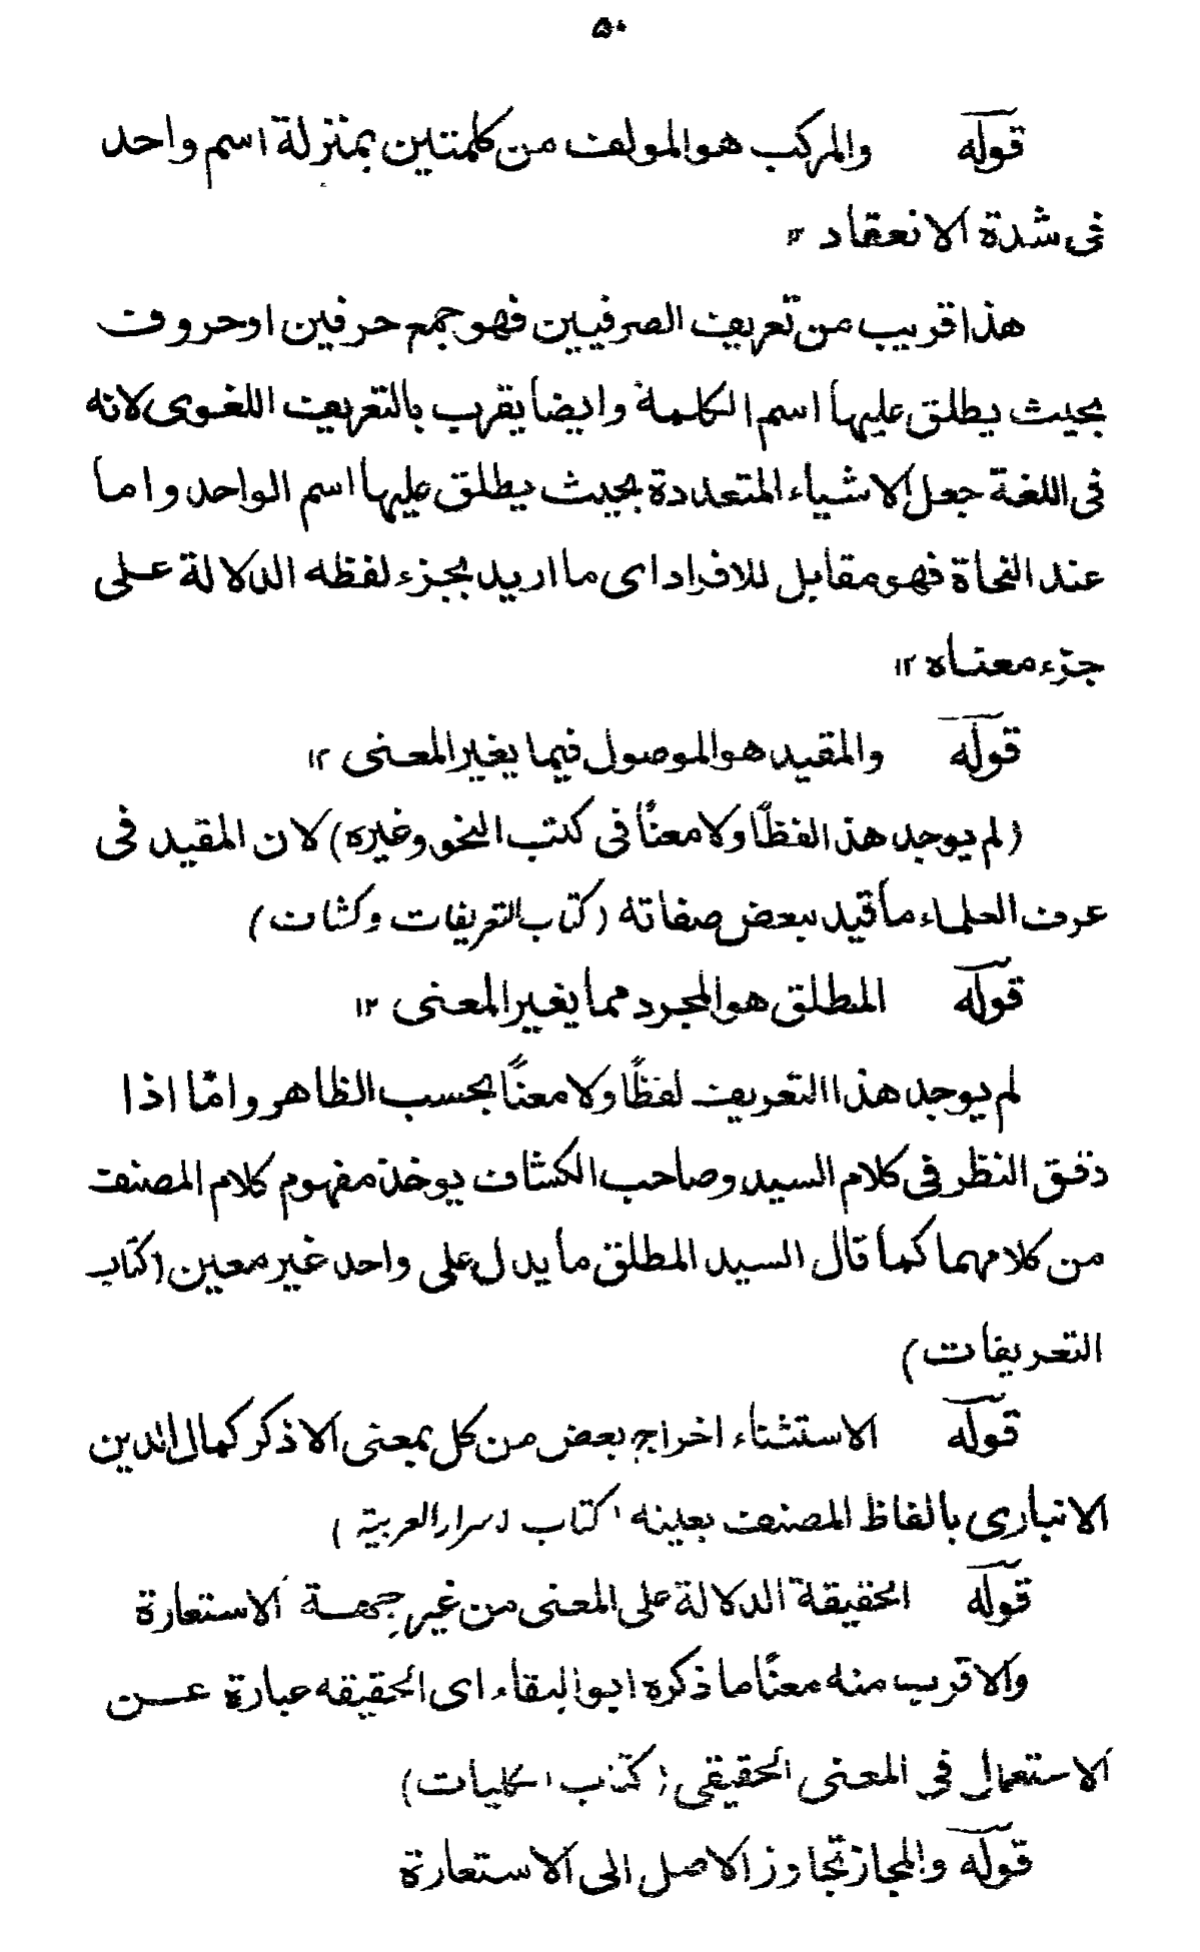 ۵۰
قوله والمركب هو المولف من كلمتين بمنزلة اسم واحد
فى شدة الانعقاد ۱۲
هذا قريب من تعريف الصرفيين فهو جمع حرفين او حروف
بحيث يطلق عليها اسم الكلمة وايضا يقرب بالتعريف اللغوى لانه
فى اللغة جعل الاشياء المتعددة بحيث يطلق عليها اسم الواحد واما
عند النحاة فهو مقابل للافراد اى ما اريد بجزء لفظه الدلالة على
جزء معناه ۱۲
قوله والمقيد هو الموصول فيما يغير المعنى ۱۲
(لم يوجد هذا لفظًا ولا معنًا فى كتب النحو وغيره) لان المقيد فى
عرف العلماء ما قيد ببعض صفاته (كتاب التعريفات وكشاف)
قوله المطلق هو المجرد مما يغير المعنى ۱۲
لم يوجد هذا التعريف لفظًا ولا معنًا بحسب الظاهر وامّا اذا
دقق النظر فى كلام السيد وصاحب الكشاف يوخذ مفهوم كلام المصنف
من كلامهما كما قال السيد المطلق ما يدل على واحد غير معين (كتاب
التعريفات)
قوله الاستثناء اخراج بعض من كل بمعنى الا ذكر كمال الدين
الانبارى بالفاظ المصنف بعينه (كتاب اسرار العربية)
قوله الحقيقة الدلالة على المعنى من غير جهة الاستعارة
والاقرب منه معنًا ما ذكره ابو البقاء اى الحقيقه عبارة عن
الاستعمال فى المعنى الحقيقى (كتاب الكليات)
قوله والمجاز تجاوز الاصل الى الاستعارة